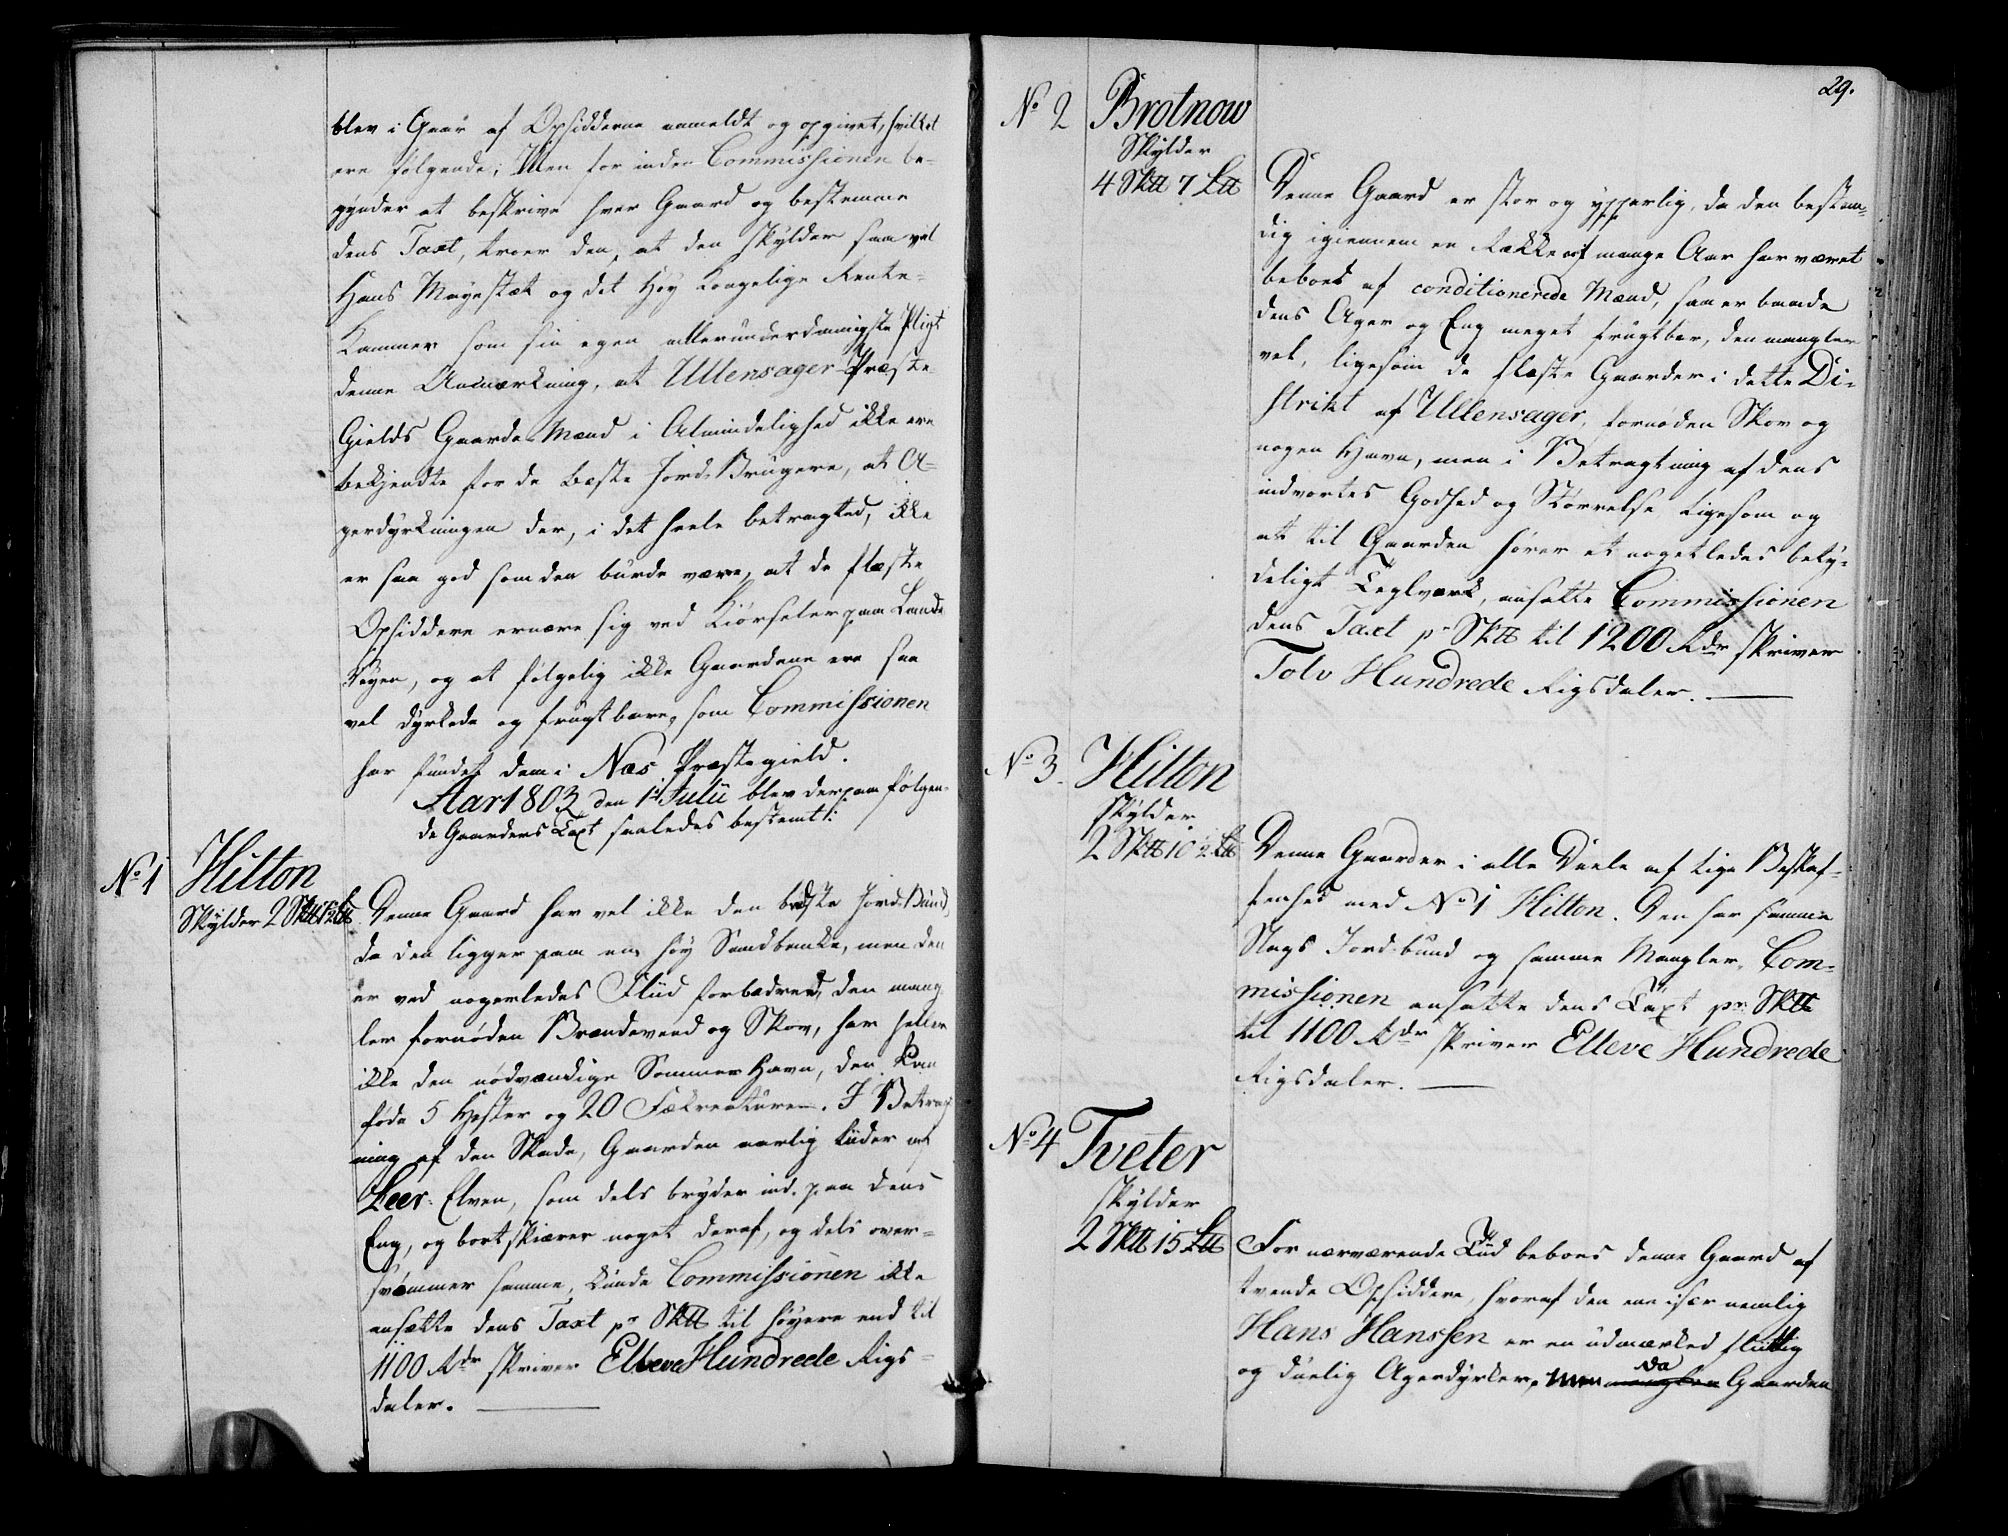 blev i Gaar af Opsidderne anmeldt og opgivet, hvilket
ere følgende; Men for inden Commissionen be-
gynder at beskrive hver Gaard og bestemme
dens Taxt, troer den, at den skylder saa vel
Hans Mayestæt og det Høy Kongelige Rente-
Kammer som sin egen allerunderdanigste Pligt
denne Anmærkning, at Ullensager Præste
Gields Gaarde Mænd i Almindelighed ikke ere
bekjendte for de bæste Jord-Brugere, at A-
gerdyrkningen der, i det heele betragted, ikke
er saa god som den burde være, at de flæste
Opsiddere ernære sig ved Kiørseler paa Lande
Veyen, og at følgelig ikke Gaardene ere saa
vel dyrkede og frugtbare, som Commissionen
har fundet dem i Næs Præstegield.
Aar 1803 den 1te Julii blev derpaa følgen-
de Gaarders Taxt saaledes bestemt:
No 1
Hilton
Skylder 2 Sktt
Denne Gaard har vel ikke den bedste Jord-Bund,
da den ligger paa en høy Sandbanke, men den
er ved nogenledes Fliid forbædred, den mang-
ler fornøden Brændeveed og Skov, har heller
ikke den nødvændige Sommer Havn, den kan
føde 5 Hester og 20 Fækreaturer. I Betragt-
ning af den Skade, Gaarden aarlig liider af
Leer-Elven, som dels bryder ind paa dens
Eng, og bortskiærer noget deraf, og dels over-
svømmer samme, kunde Commissionen ikke
ansætte dens Taxt pr Sktt til høyere end til
1100 Rdr skriver Elleve Hundrede Rigs-
daler.
29.
No 2
Brotnow
Skylder
4 Sktt 7 Ltt
Denne Gaard er stor og ypperlig, da den bestan-
dig igiennem en Række af mange Aar har været
beboet af conditionerede Mænd, saa er baade
dens Ager og Eng meget frugtbar, den mangler
vel, ligesom de fleste Gaarder i dette Di-
strikt af Ullensager, fornøden Skov og
nogen Havn, men i Betragtning af dens
indvortes Godhed og Størrelse ligesom og
at til Gaarden hører et nogetledes bety-
deligt Teglværk, ansatte Commissionen
dens Taxt pr Sktt til 1200 Rdr skriver
Tolv Hundrede Rigsdaler.
No 3
Hilton
Skylder
2 Sktt 10 1/2 Ltt
Denne Gaard er i alle Deele af lige Beskaf-
fenhed med No 1 Hilton. Den har samme
Slags Jord-bund og samme Mangler, Com-
missionen ansatte dens Taxt pr Sktt
til 1100 Rdr skriver Elleve Hundrede
Rigsdaler.
No 4
Tveter
Skylder
2 Sktt 15 Ltt
For nærværende Tiid beboes denne Gaard af
tvende Opsiddere, hvoraf den ene især nemlig
Hans Hanssen er en udmærked flittig
og duelig Agerdyrker, men da Gaarden